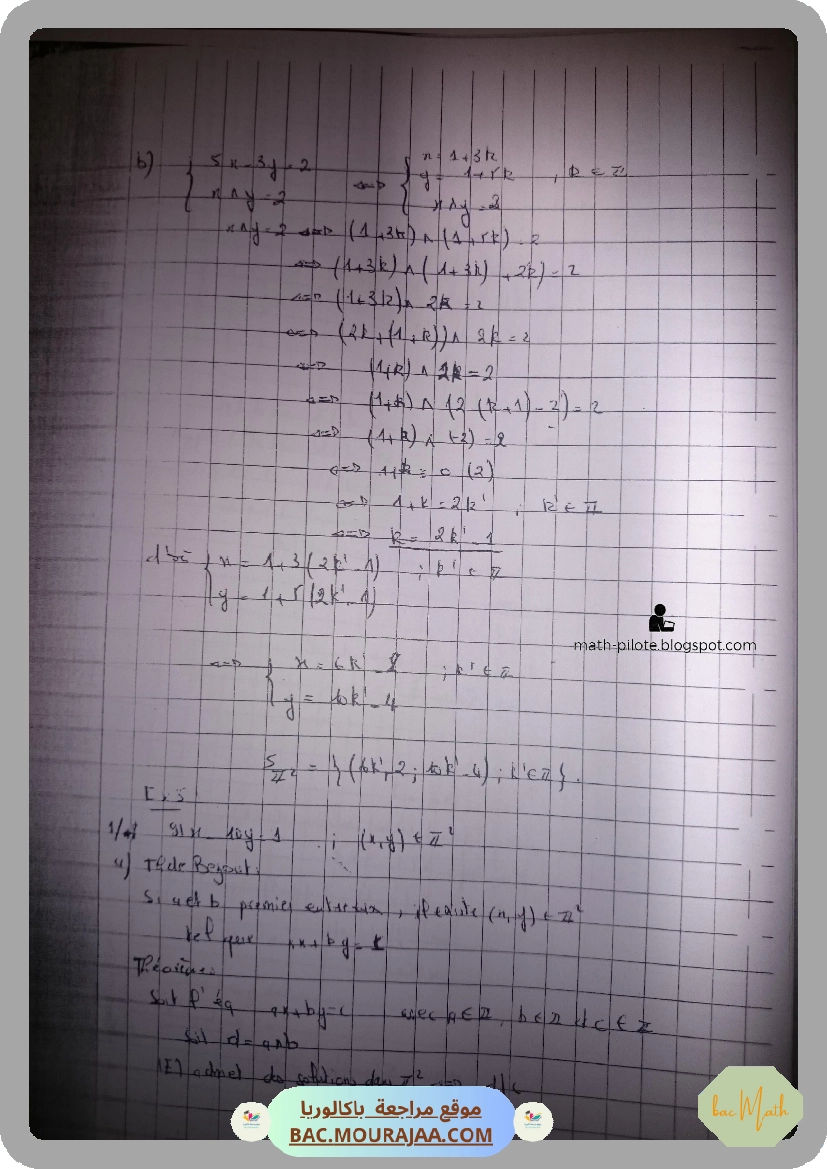 b) { 5x - 3y = 2
x ∧ y = 2
⇔ { x = 1 + 3k
y = 1 + 5k , k ∈ ℤ
x ∧ y = 2
x ∧ y = 2 ⇔ (1 + 3k) ∧ (1 + 5k) = 2
⇔ (1+3k) ∧ (1+3k) + 2k) = 2
⇔ (1+3k) ∧ 2k = 2
⇔ (2k + (1+k)) ∧ 2k = 2
⇔ (1+k) ∧ 2k = 2
⇔ (1+k) ∧ (2(k+1) - 2) = 2
⇔ (1+k) ∧ (-2) = 2
⇔ 1+k ≡ 0 (2)
⇔ 1+k = 2k' ; k' ∈ ℤ
⇔ k = 2k' - 1
{ x = 1 + 3(2k' - 1) ; k' ∈ ℤ
y = 1 + 5(2k' - 1)
math-pilote.blogspot.com
⇔ { x = 6k' - 2 ; k' ∈ ℤ
y = 10k' - 4
S ℤ² = {(6k' - 2 ; 10k' - 4) ; k' ∈ ℤ}.
1/ 91x - 10y = 1 ; (x, y) ∈ ℤ²
a) Th de Bezout :
Si a et b premiers entre eux, il existe (x, y) ∈ ℤ²
tel que ax + by = 1
Théorème
Soit l'éq ax + by = c avec a ∈ ℤ, b ∈ ℤ et c ∈ ℤ
soit d = a ∧ b
(E) admet des solutions dans ℤ² ⇔ d/c
موقع مراجعة باكالوريا
BAC.MOURAJAA.COM
bac Math